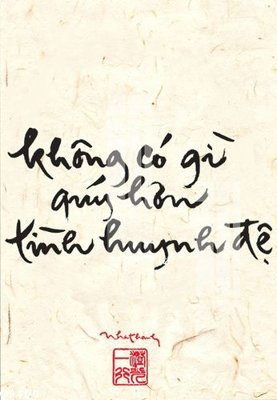 không có gì
quý hơn
tình huynh đệ
nhathanh
一行